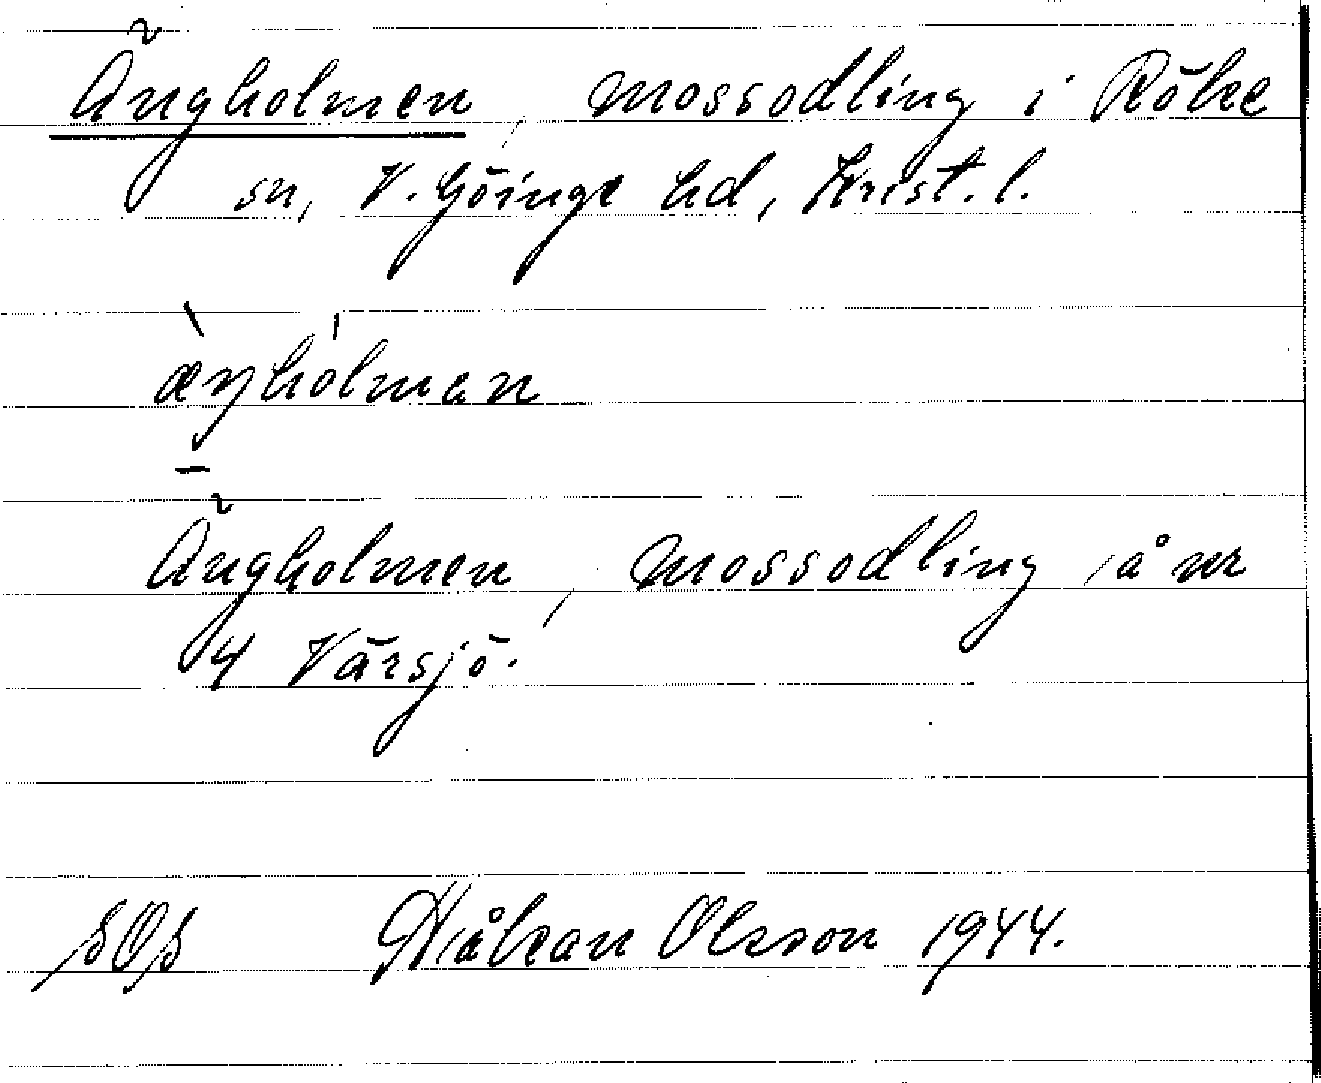 Ängholmen, mossodling i Röke
sn, V. Göinge hd, Krist. l.
æŋhólman
Ängholmen, mossodling, å nr
4 Värsjö.
Håkan Olsson 1944.